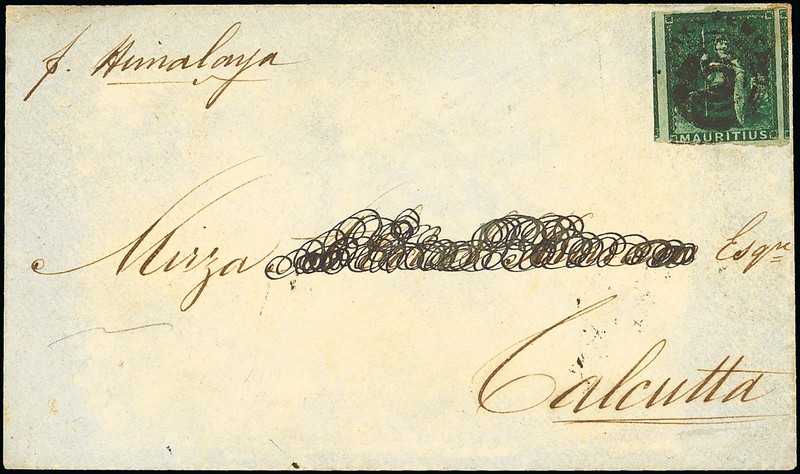 p. Himalaya
MAURITIUS
Mirza Esqre
Calcutta